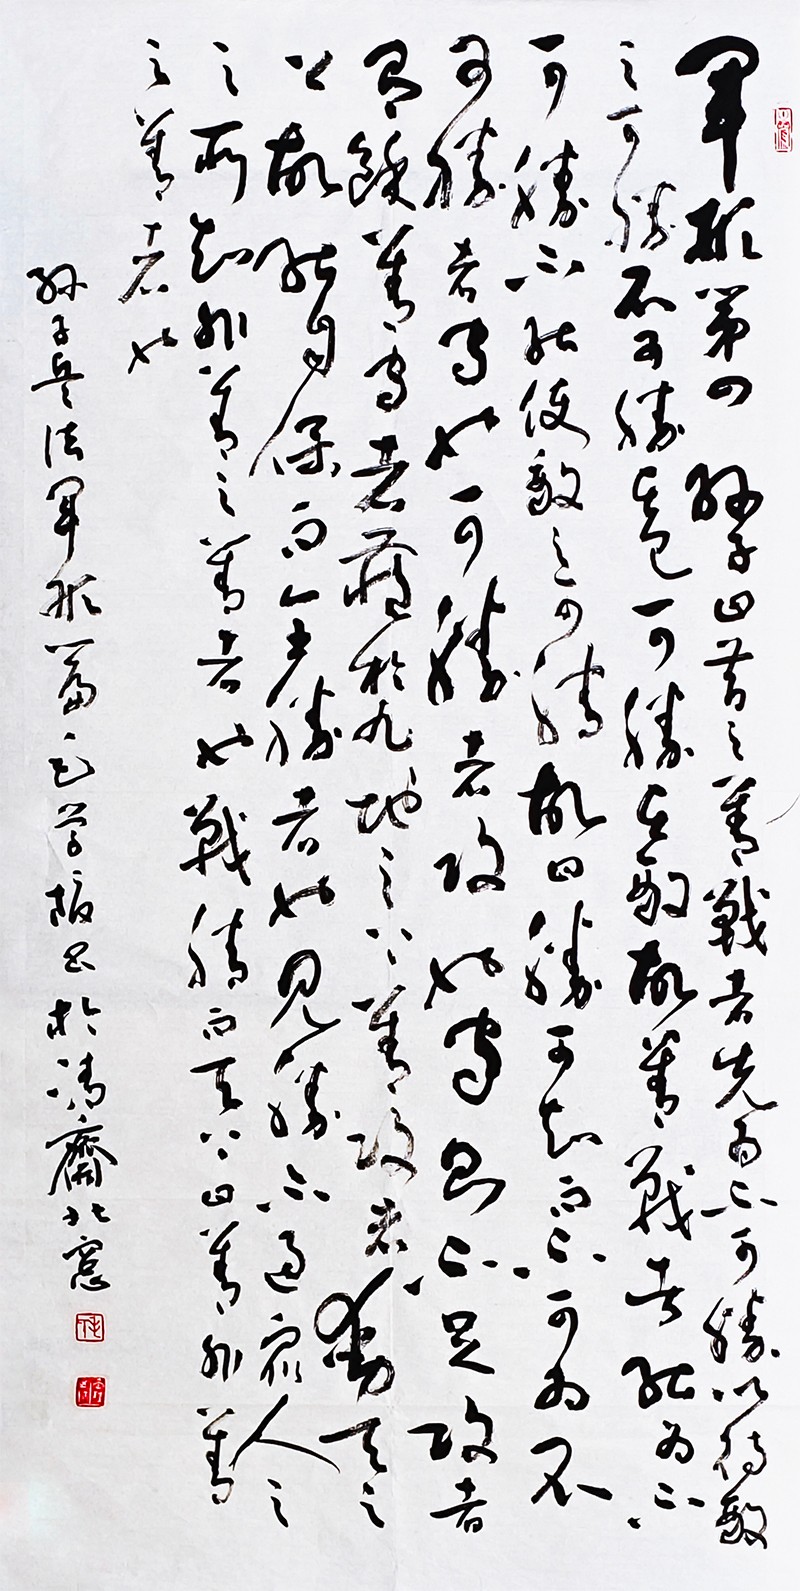 軍形第四 孫子曰昔之善戰者先為不可勝以待敵
之可勝不可勝在己可勝在敵故善戰者能為不
可勝不能使敵之可勝故曰勝可知而不可為不
可勝者守也可勝者攻也守則不足攻者
有餘善守者藏於九地之下善攻者動天之
上故能自保而全勝者也見勝不過眾人之
之所知非善之善者也戰勝而天下曰善非善
之善者也
孫子兵法軍形篇毛学振书於清齋北窓